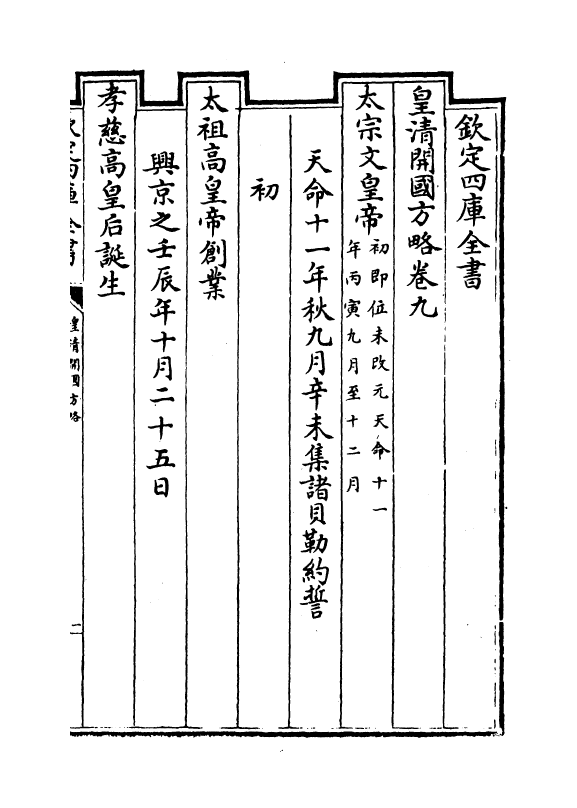 欽定四庫全書
皇清開國方略卷九
太宗文皇帝初即位未改元天命十一
年丙寅九月至十二月
天命十一年秋九月辛未集諸貝勒約誓
初
太祖高皇帝創業
興京之壬辰年十月二十五日
孝慈高皇后誕生
欽定四庫全書
皇清開國方略